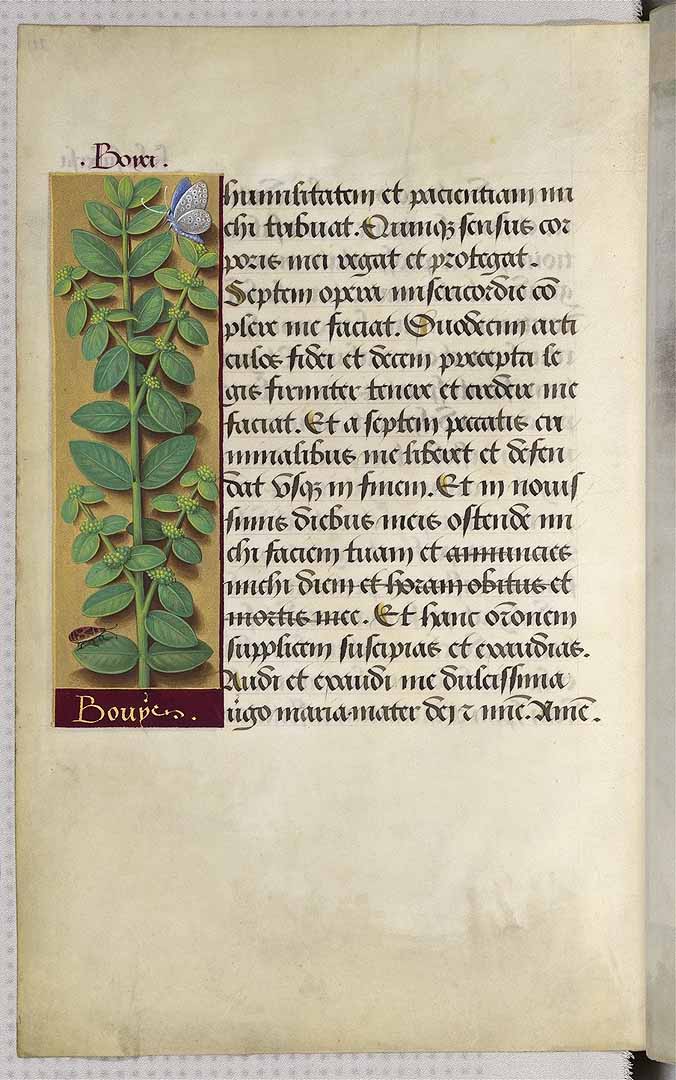 . Boxci .
humilitatem et pacientiam mi
chi tribuat. Quinqꝫ sensus cor
poris mei regat et protegat.
Septem opera misericordie cō
plere me faciat. Duodecim arti
culos fidei et decem precepta le
gis firmiter tenere et credere me
faciat. Et a septem peccatis cri
minalibus me liberet et defen
dat vsqꝫ in finem. Et in nouis
simis diebus meis ostende mi
chi faciem tuam et annuncies
michi diem et horam obitus et
mortis mee. Et hanc orōnem
supplicem suscipias et exaudias.
Audi et exaudi me dulcissima
uigo maria mater dei ⁊ mīe. Amē.
Bouyes.